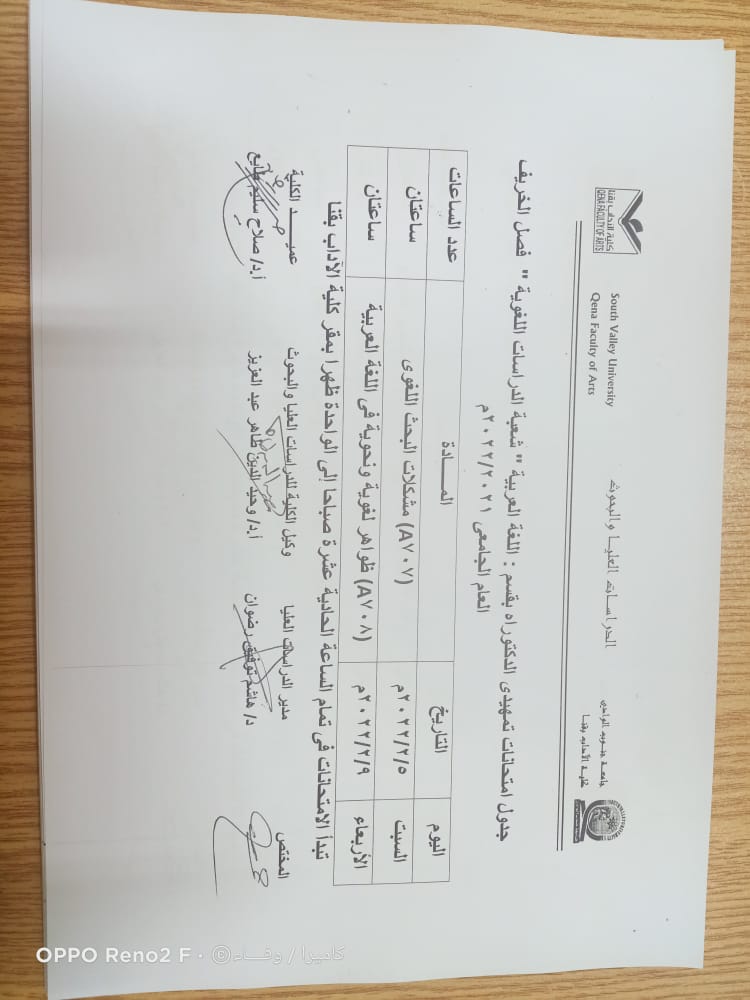 جامعة جنوب الوادي
كلية الآداب بقنا
الدراسات العليا والبحوث
South Valley University
Qena Faculty of Arts
كلية الآداب بقنا
QENA FACULTY OF ARTS
جدول امتحانات تمهيدى الدكتوراه بقسم : اللغة العربية " شعبة الدراسات اللغوية " فصل الخريف
العام الجامعى ٢٠٢٢/٢٠٢١م
اليوم التاريخ المــــادة عدد الساعات
السبت ٢٠٢٢/٢/٥م (A٧٠٧) مشكلات البحث اللغوى ساعتان
الأربعاء ٢٠٢٢/٢/٩م (A٧٠٨) ظواهر لغوية ونحوية فى اللغة العربية ساعتان
تبدأ الامتحانات فى تمام الساعة الحادية عشرة صباحا إلى الواحدة ظهرا بمقر كلية الآداب بقنا
المختص مدير الدراسات العليا وكيل الكلية للدراسات العليا والبحوث عميــد الكلية
د/ هاشم توفيق رضوان أ.د/ وحيد الدين طاهر عبد العزيز أ.د/ صلاح سليم طايع
OPPO Reno2 F · ©كاميرا / وفــاء